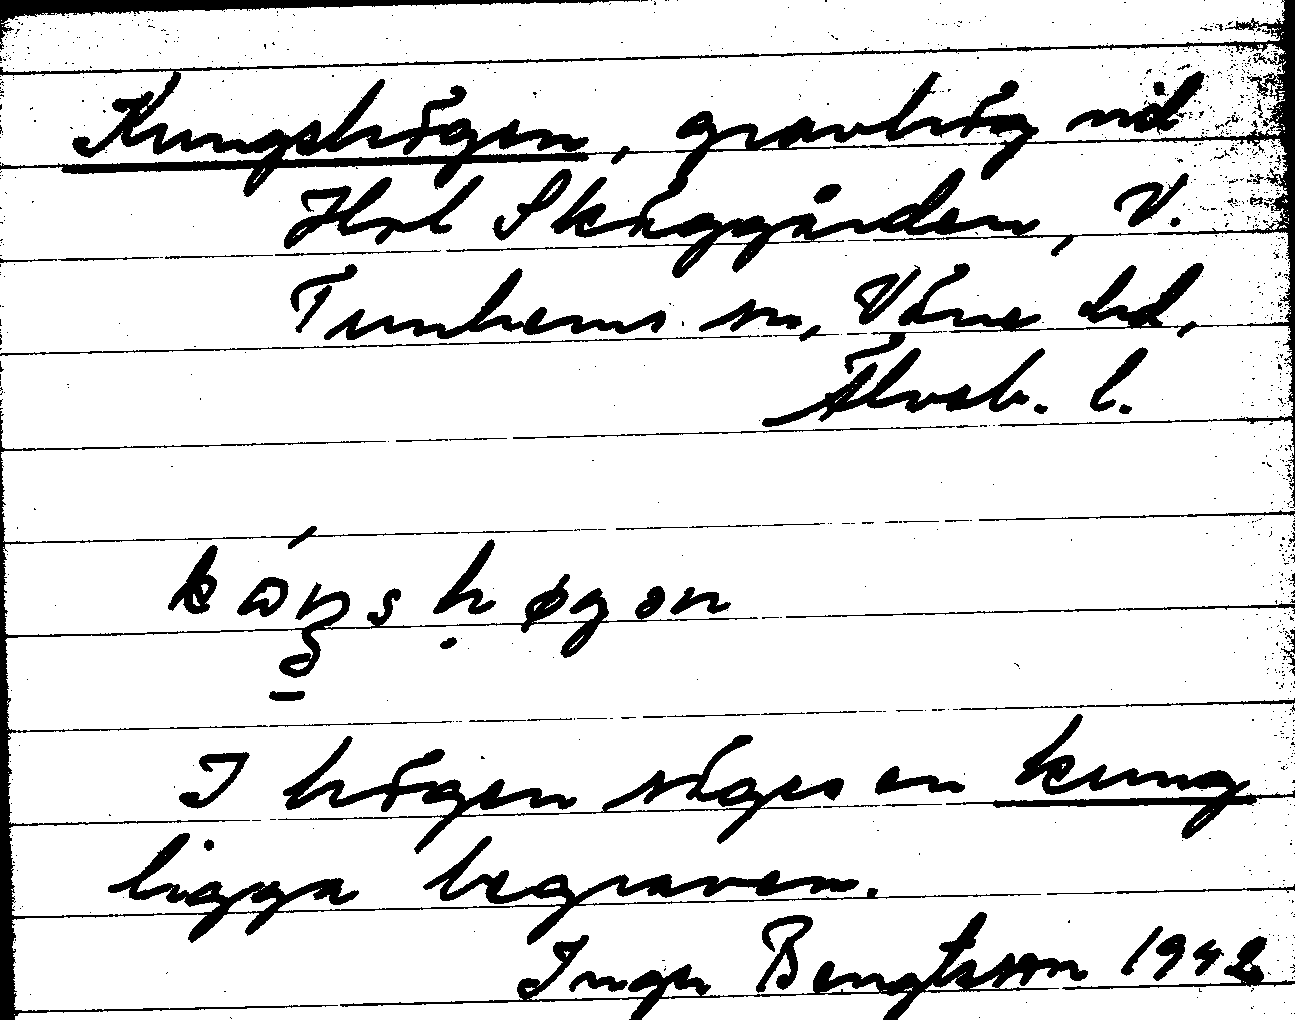 Kungshögen, gravhög vid
Hsl Skäggården, V.
Tunhems sn, Väne hd,
Älvsb. l.
høgən
I högen säges en kung
ligga begraven.
Inger Bengtsson 1942